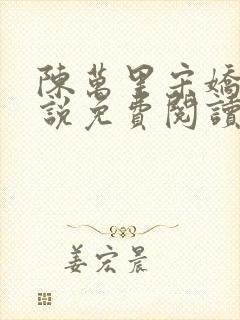 陳萬里宋嬌
說免費閱讀
姜宏晨